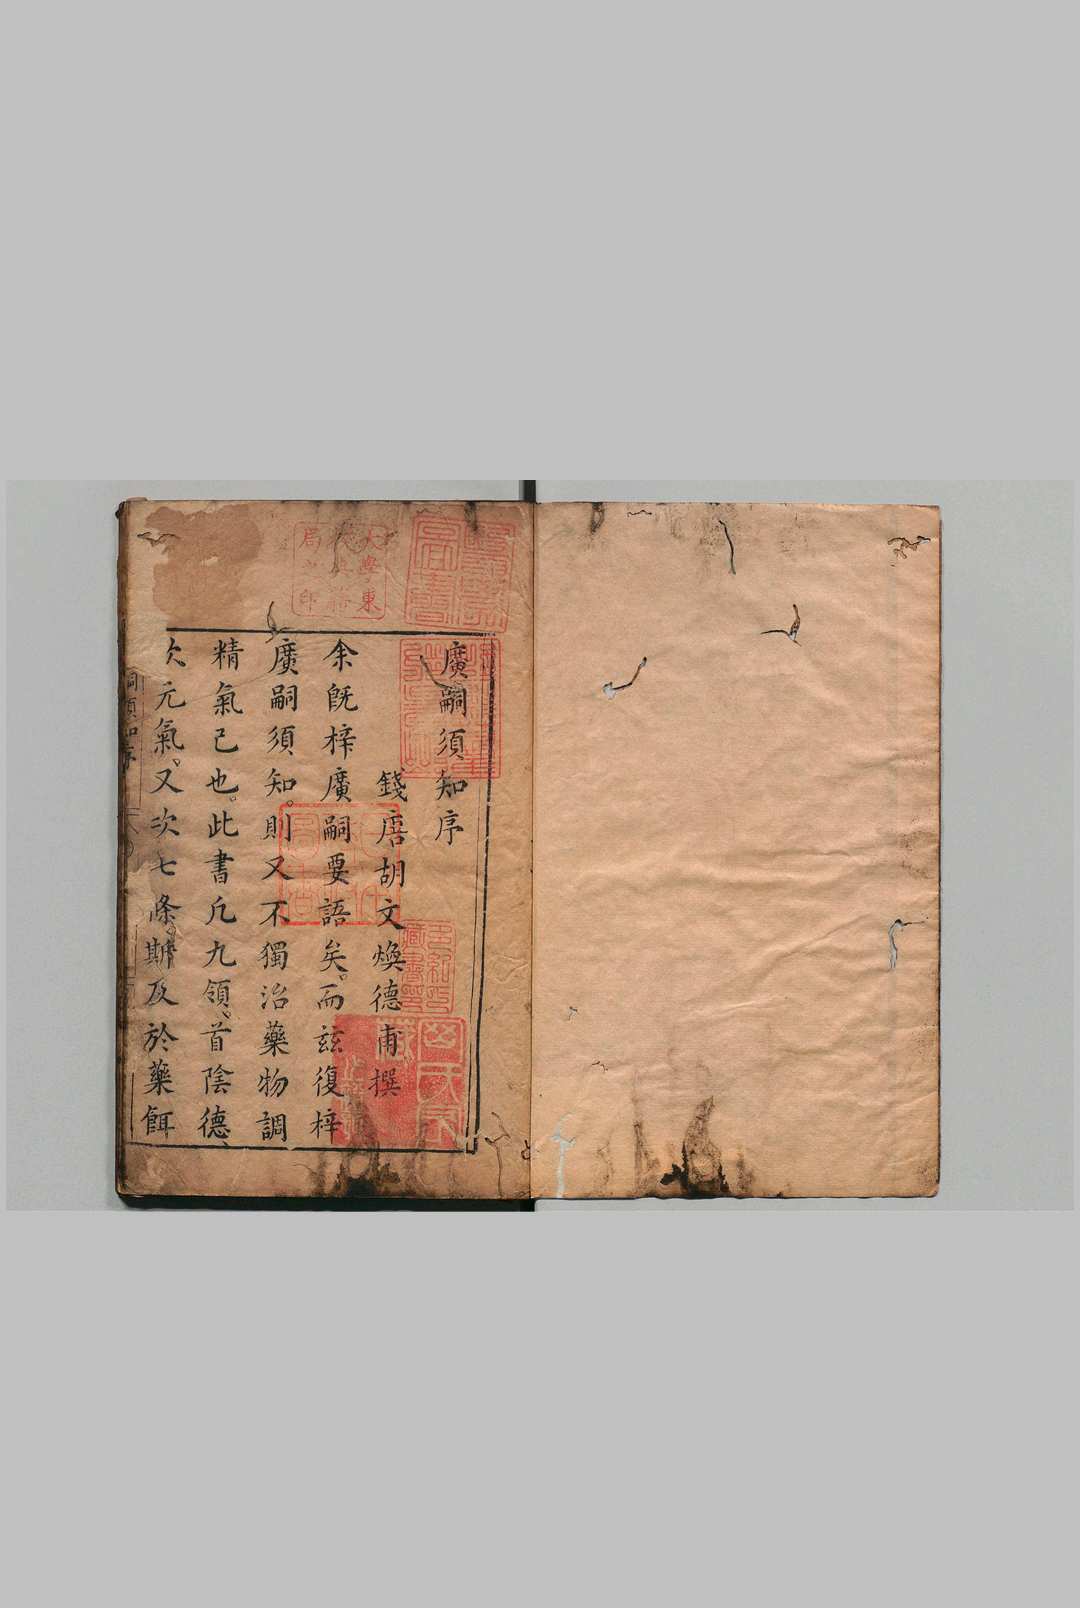 廣嗣須知序
錢唐胡文煥德甫撰
余旣梓廣嗣要語矣。而玆復梓
廣嗣須知。則又不獨治藥物調
精氣已也。此書凡九領、首陰德、
次元氣。又次七條。斯及於藥餌
嗣須知序
大學東
局之印